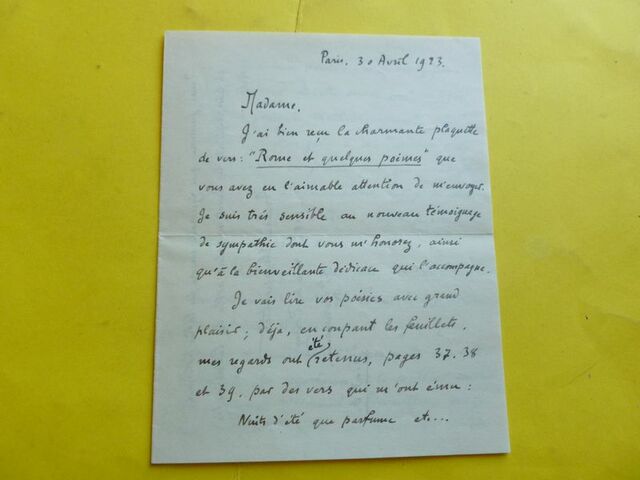 Paris, 30 Avril 1923.
Madame,
J'ai bien reçu la charmante plaquette
de vers : "Rome et quelques poèmes" que
vous avez eu l'aimable attention de m'envoyer.
Je suis très sensible au nouveau témoignage
de sympathie dont vous m'honorez, ainsi
qu'à la bienveillante dédicace qui l'accompagne.
Je vais lire vos poésies avec grand
plaisir ; déjà, en coupant les feuillets,
mes regards ont été retenus, pages 37. 38
et 39, par des vers qui m'ont ému :
Nuits d'été que parfume etc...